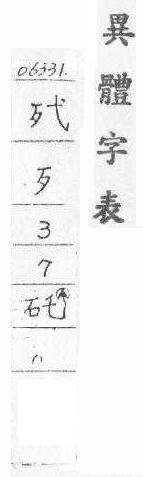 異體字表
06331.
歹
3
7
〃